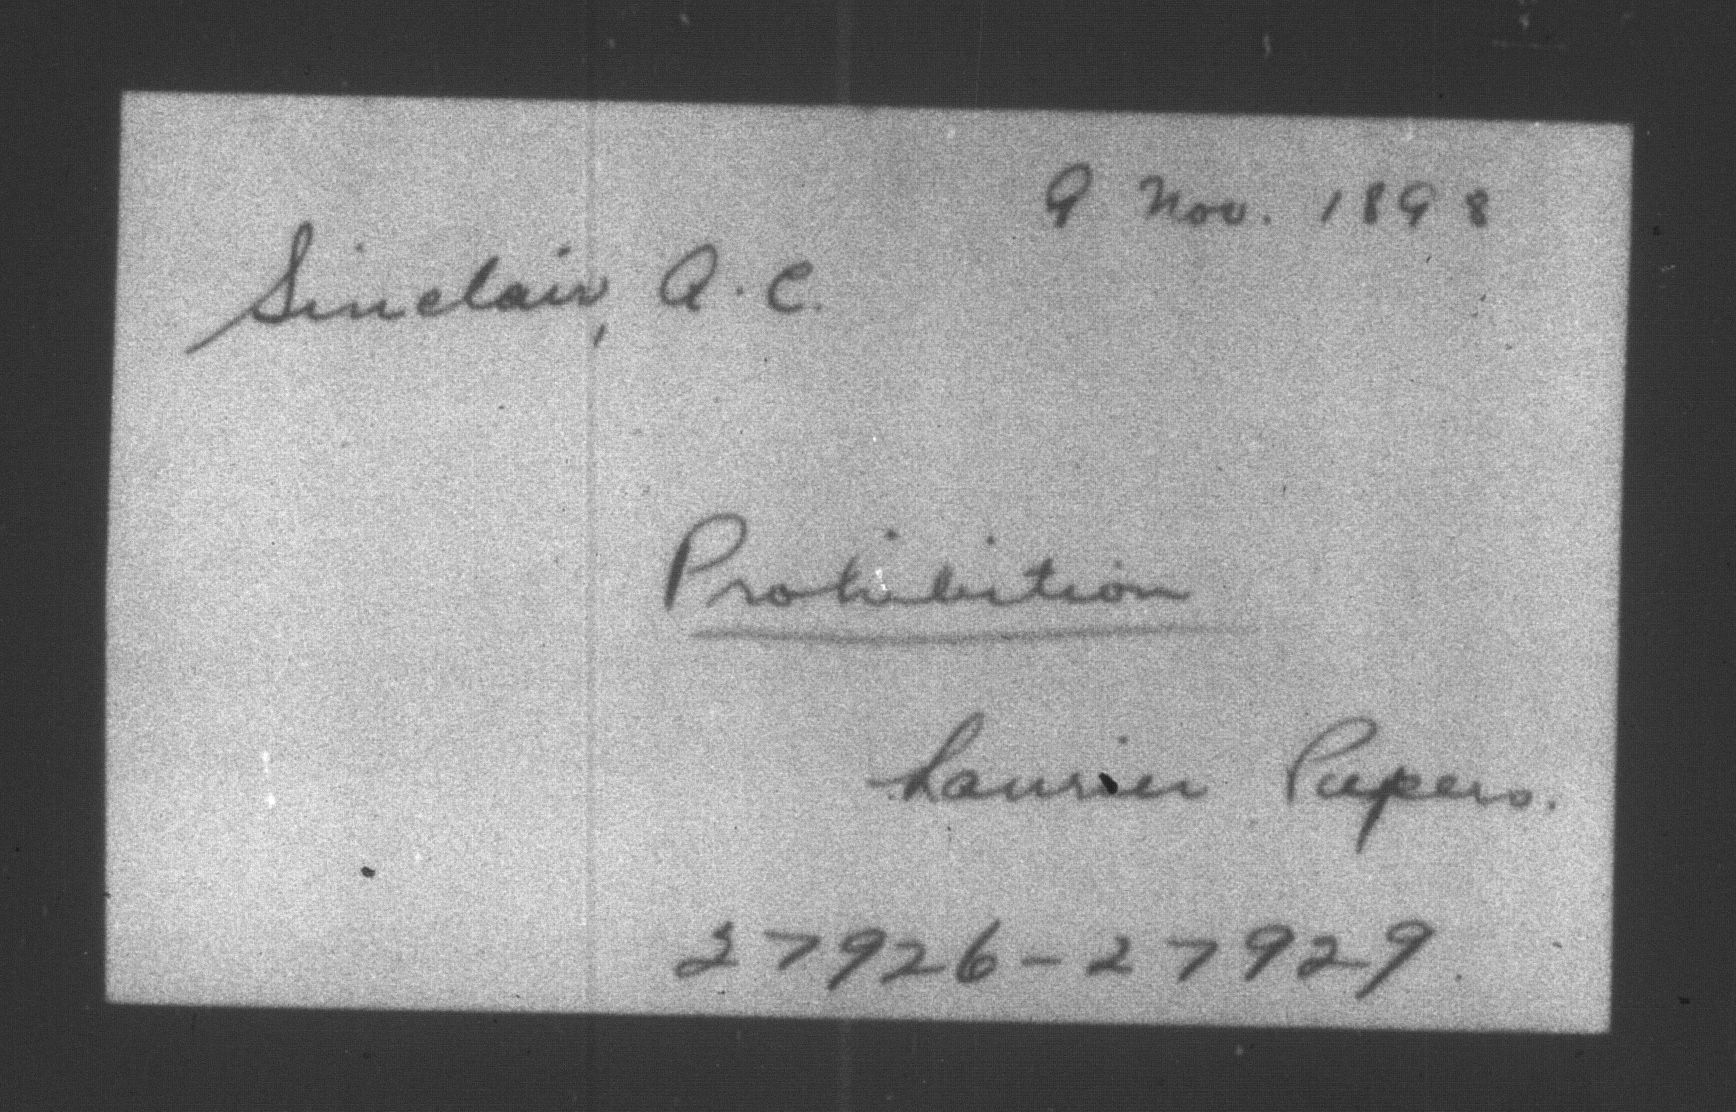 9 Nov. 1898
Sinclair, A. C.
Prohibition
Laurier Papers.
27926-27929